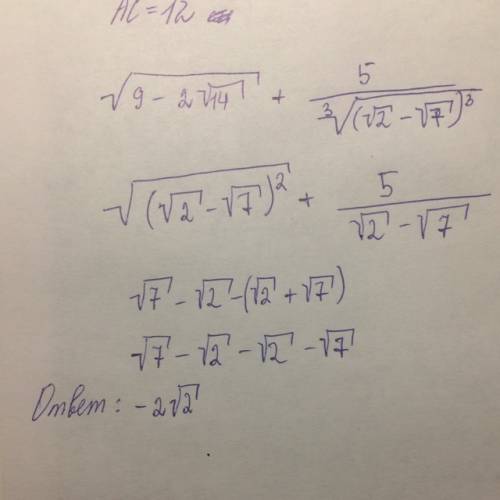 AC = 12
√(9 - 2√14) + 5/∛((√2 - √7)³)
√((√2 - √7)²) + 5/(√2 - √7)
√7 - √2 - (√2 + √7)
√7 - √2 - √2 - √7
Ответ: -2√2